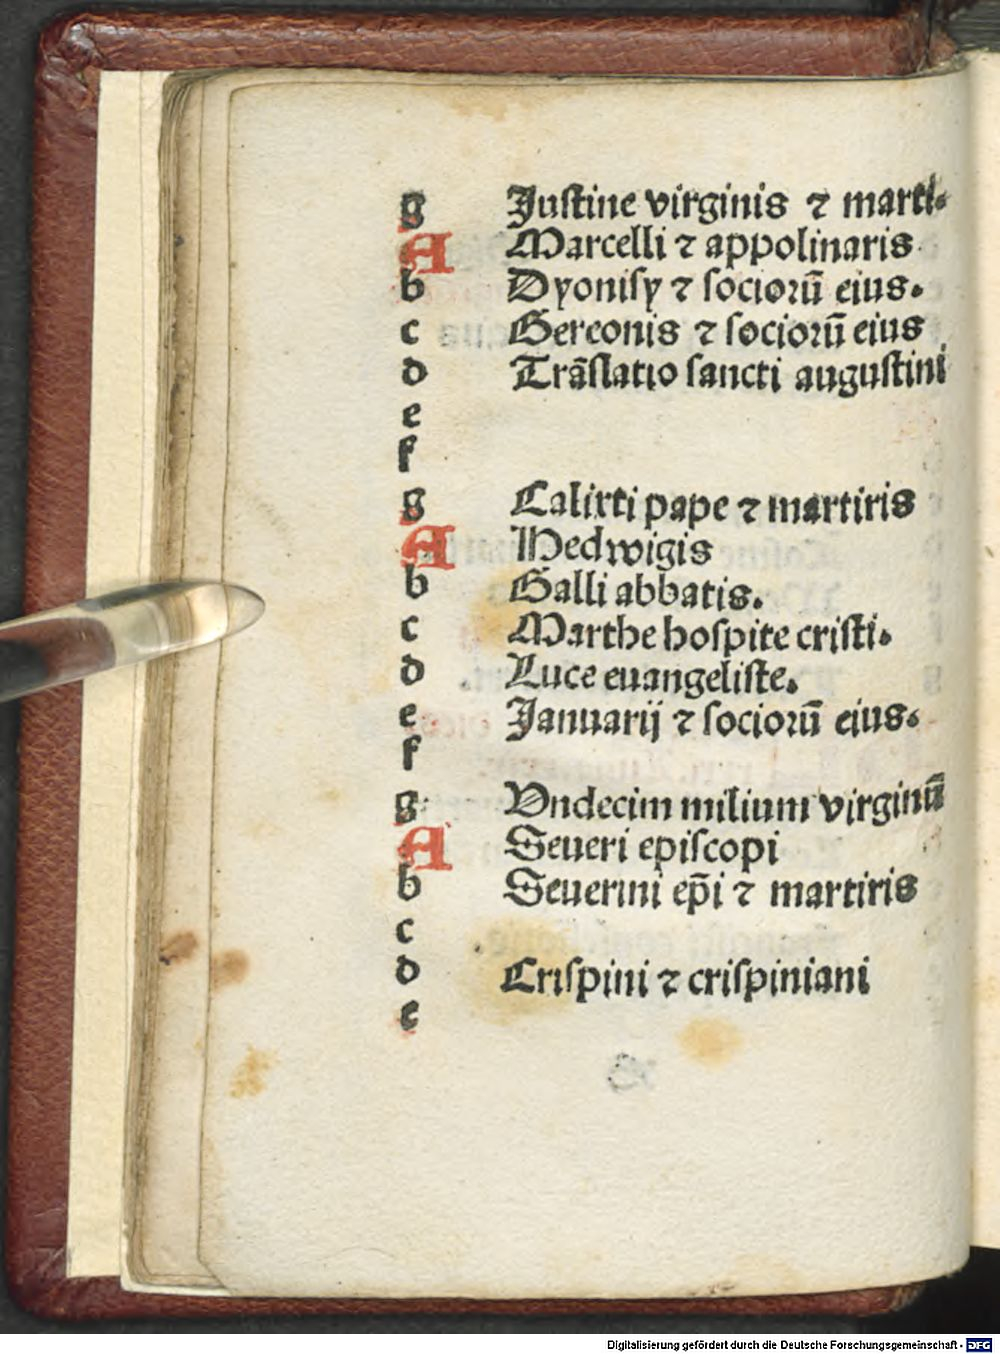 g Juſtine virginis ⁊ marti.
A Marcelli ⁊ appolinaris.
b Dyoniſy ⁊ ſocioꝛū eius.
c Gereonis ⁊ ſocioꝛū eius
d Trāſlatio ſancti auguſtini
e
f
g Calixti pape ⁊ martiris
A Hedwigis
b Galli abbatis.
c Marthe hoſpite criſti.
d Luce euangeliſte.
e Januarij ⁊ ſocioꝛū eius.
f
g Vndecim milium virginū
A Seueri epiſcopi
b Seuerini ep̄i ⁊ martiris
c
d Criſpini ⁊ criſpiniani
e
Digitalisierung gefördert durch die Deutsche Forschungsgemeinschaft - DFG